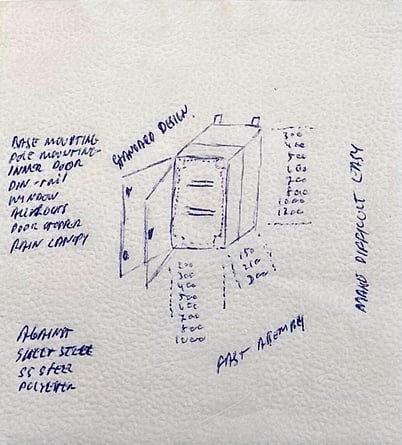 STANDARD DESIGN
BASE MOUNTING
POLE MOUNTING
INNER DOOR
DIN-rail
WINDOW
DOOR STOPPER
RAIN CANOPY
300
400
500
600
700
800
1000
1200
150
210
300
300
400
500
600
700
800
1000
FAST ASSEMBLY
MAKE DIFFICULT EASY
AGAINST
SHEET STEEL
SS STEEL
POLYESTER